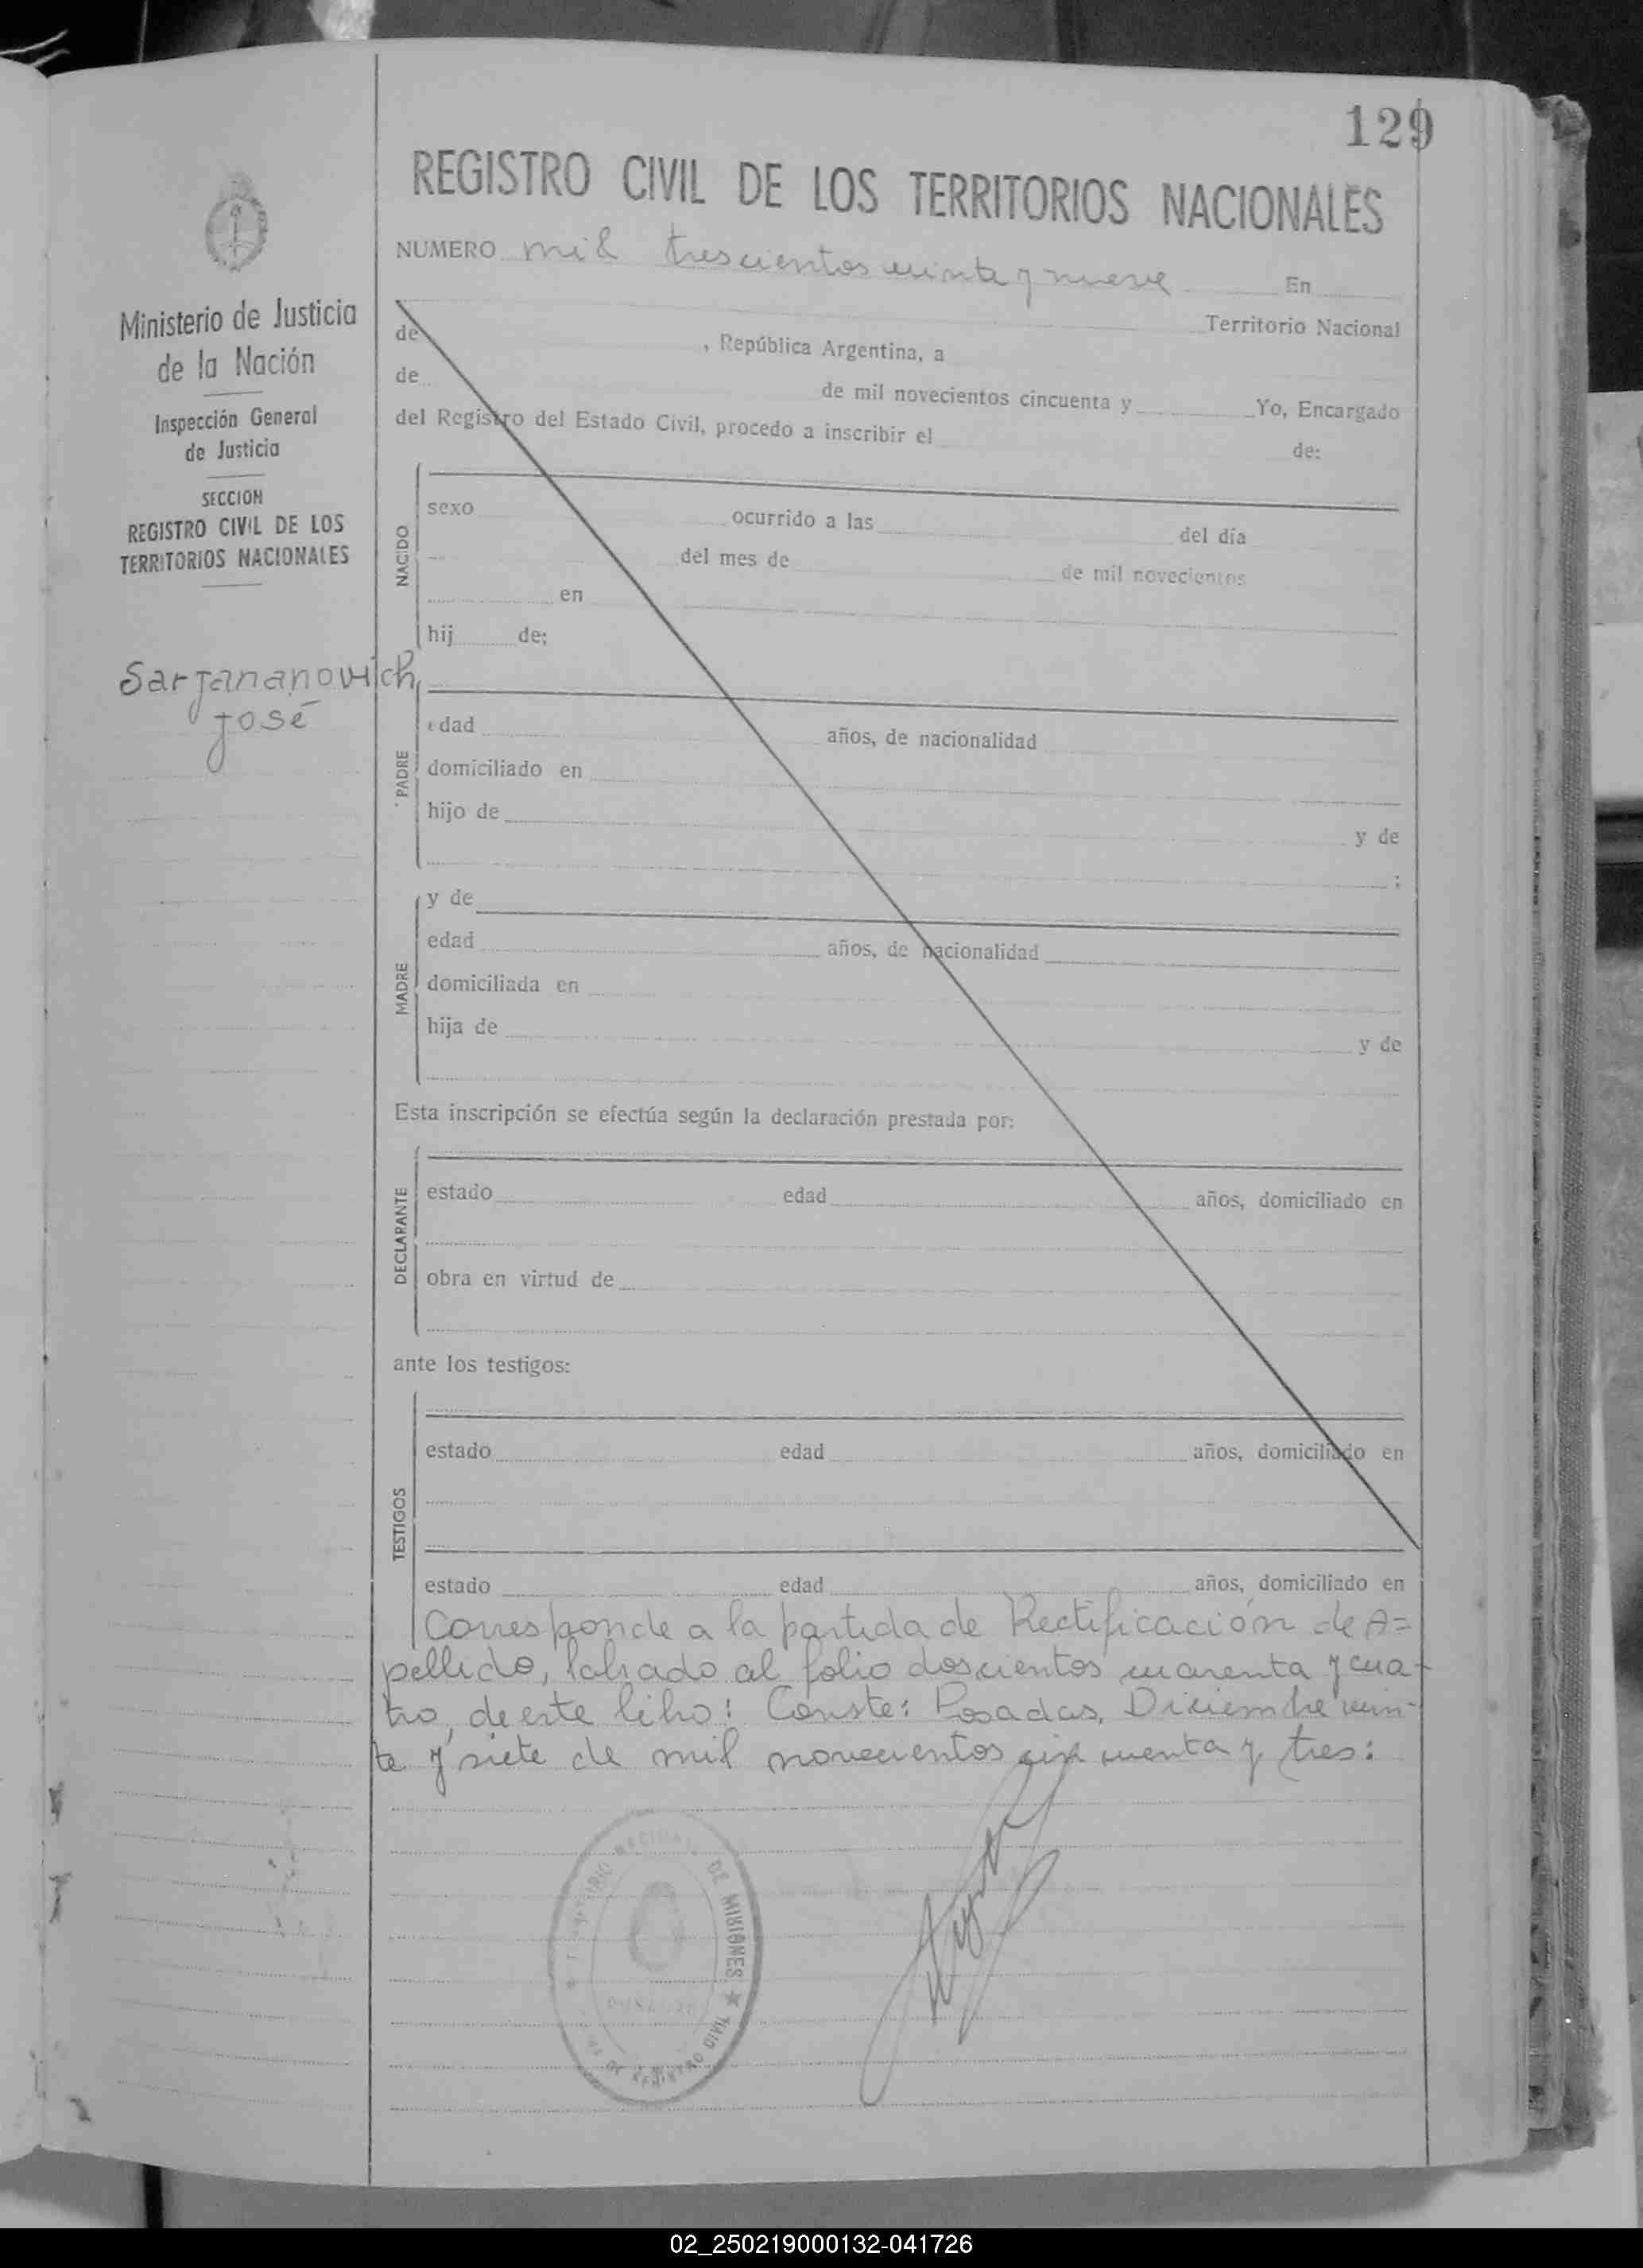 129
REGISTRO CIVIL DE LOS TERRITORIOS NACIONALES
NUMERO mil trescientos veinte y nueve En
Territorio Nacional
de , República Argentina, a
de de mil novecientos cincuenta y Yo, Encargado
del Registro del Estado Civil, procedo a inscribir el
de:
Ministerio de Justicia
de la Nación
Inspección General
de Justicia
SECCION
REGISTRO CIVIL DE LOS
TERRITORIOS NACIONALES
NACIDO
sexo ocurrido a las del día
del mes de de mil novecientos
en
hij de:
Sarjananovich
José
PADRE
edad años, de nacionalidad
domiciliado en
hijo de y de
;
MADRE
y de
edad años, de nacionalidad
domiciliada en
hija de y de
Esta inscripción se efectúa según la declaración prestada por:
DECLARANTE
estado edad años, domiciliado en
obra en virtud de
ante los testigos:
TESTIGOS
estado edad años, domiciliado en
estado edad años, domiciliado en
Corresponde a la partida de Rectificación de A=
pellido, labrado al folio doscientos cuarenta y cua-
tro, de este libro: Conste: Posadas, Diciembre vein-
te y siete de mil novecientos cincuenta y tres:
DE MISIONES ★
REGISTRO CIVIL
02_250219000132-041726